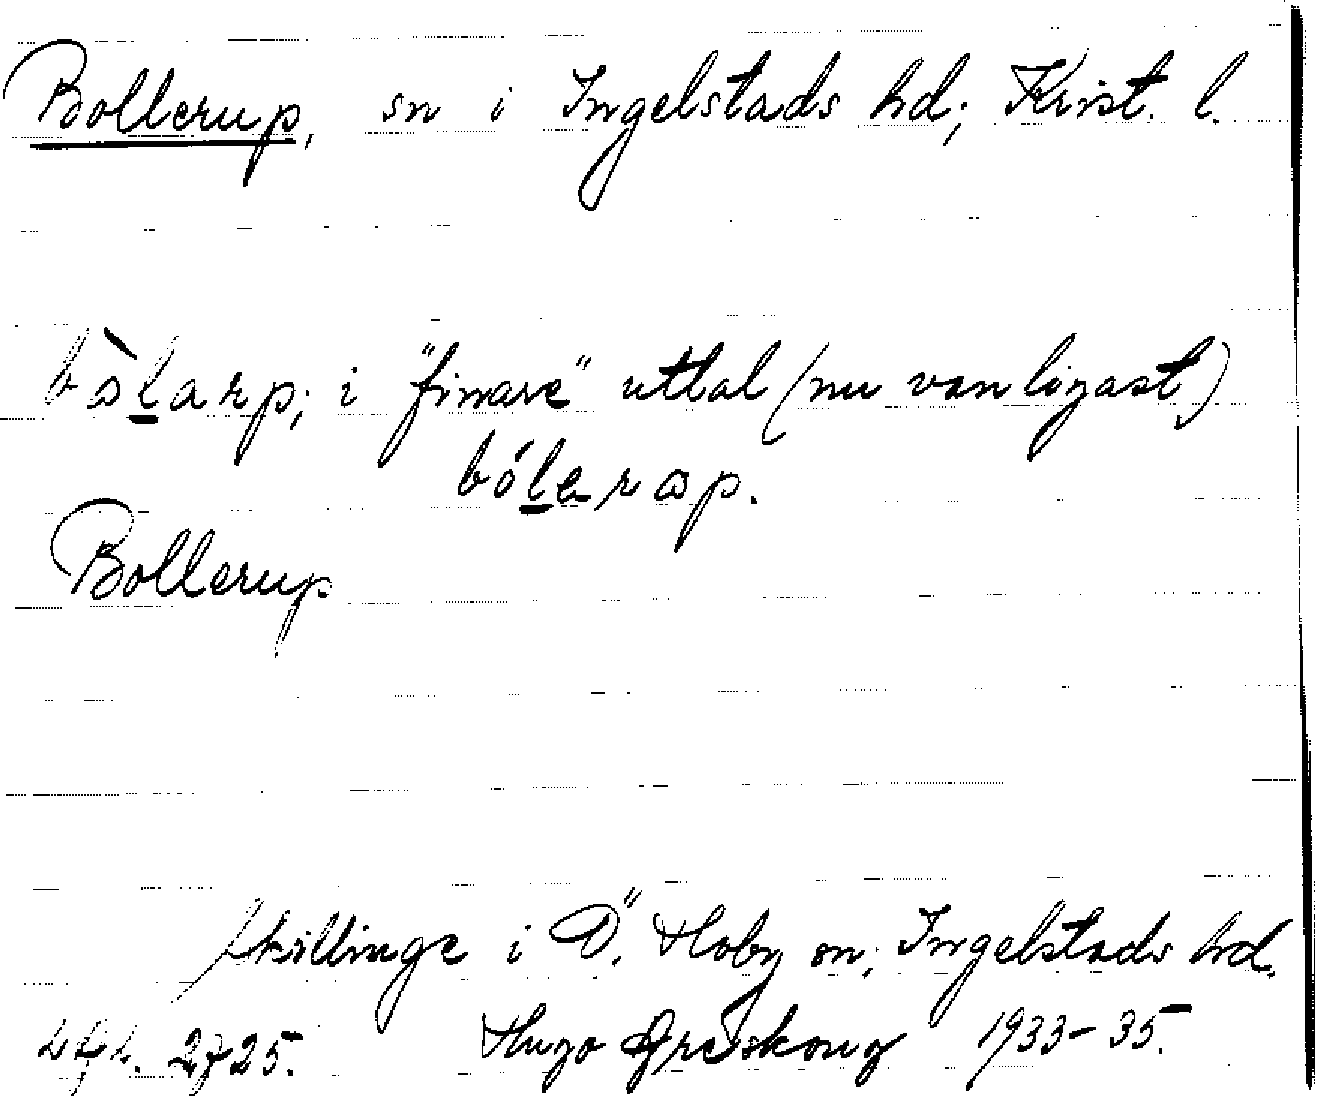 Bollerup, sn i Ingelstads hd; Krist. l.
bòlarp; i "finare" uttal (nu vanligast)
bólerɷp.
Bollerup
Skillinge i Ö. Hoby sn, Ingelstads hd.
2725. Hugo Areskoug 1933-35.